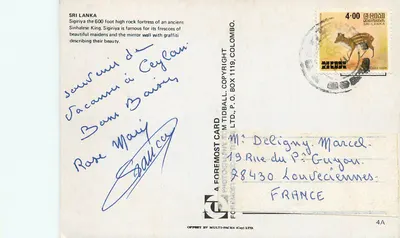 SRI LANKA
Sigiriya the 600 foot high rock fortress of an ancient
Sinhalese King. Sigiriya is famous for its frescoes of
beautiful maidens and the mirror wall with graffiti
describing their beauty.
Souvenir de
Vacances à Ceylan.
Bons Baisers
Rose Marie
A FOREMOST CARD
TIDBALL, COPYRIGHT
LTD., P.O. BOX 1119, COLOMBO.
4.00
Mr Deligny. Marcel.
19 Rue du Pt Guyon.
78430 Louveciennes.
FRANCE
4A